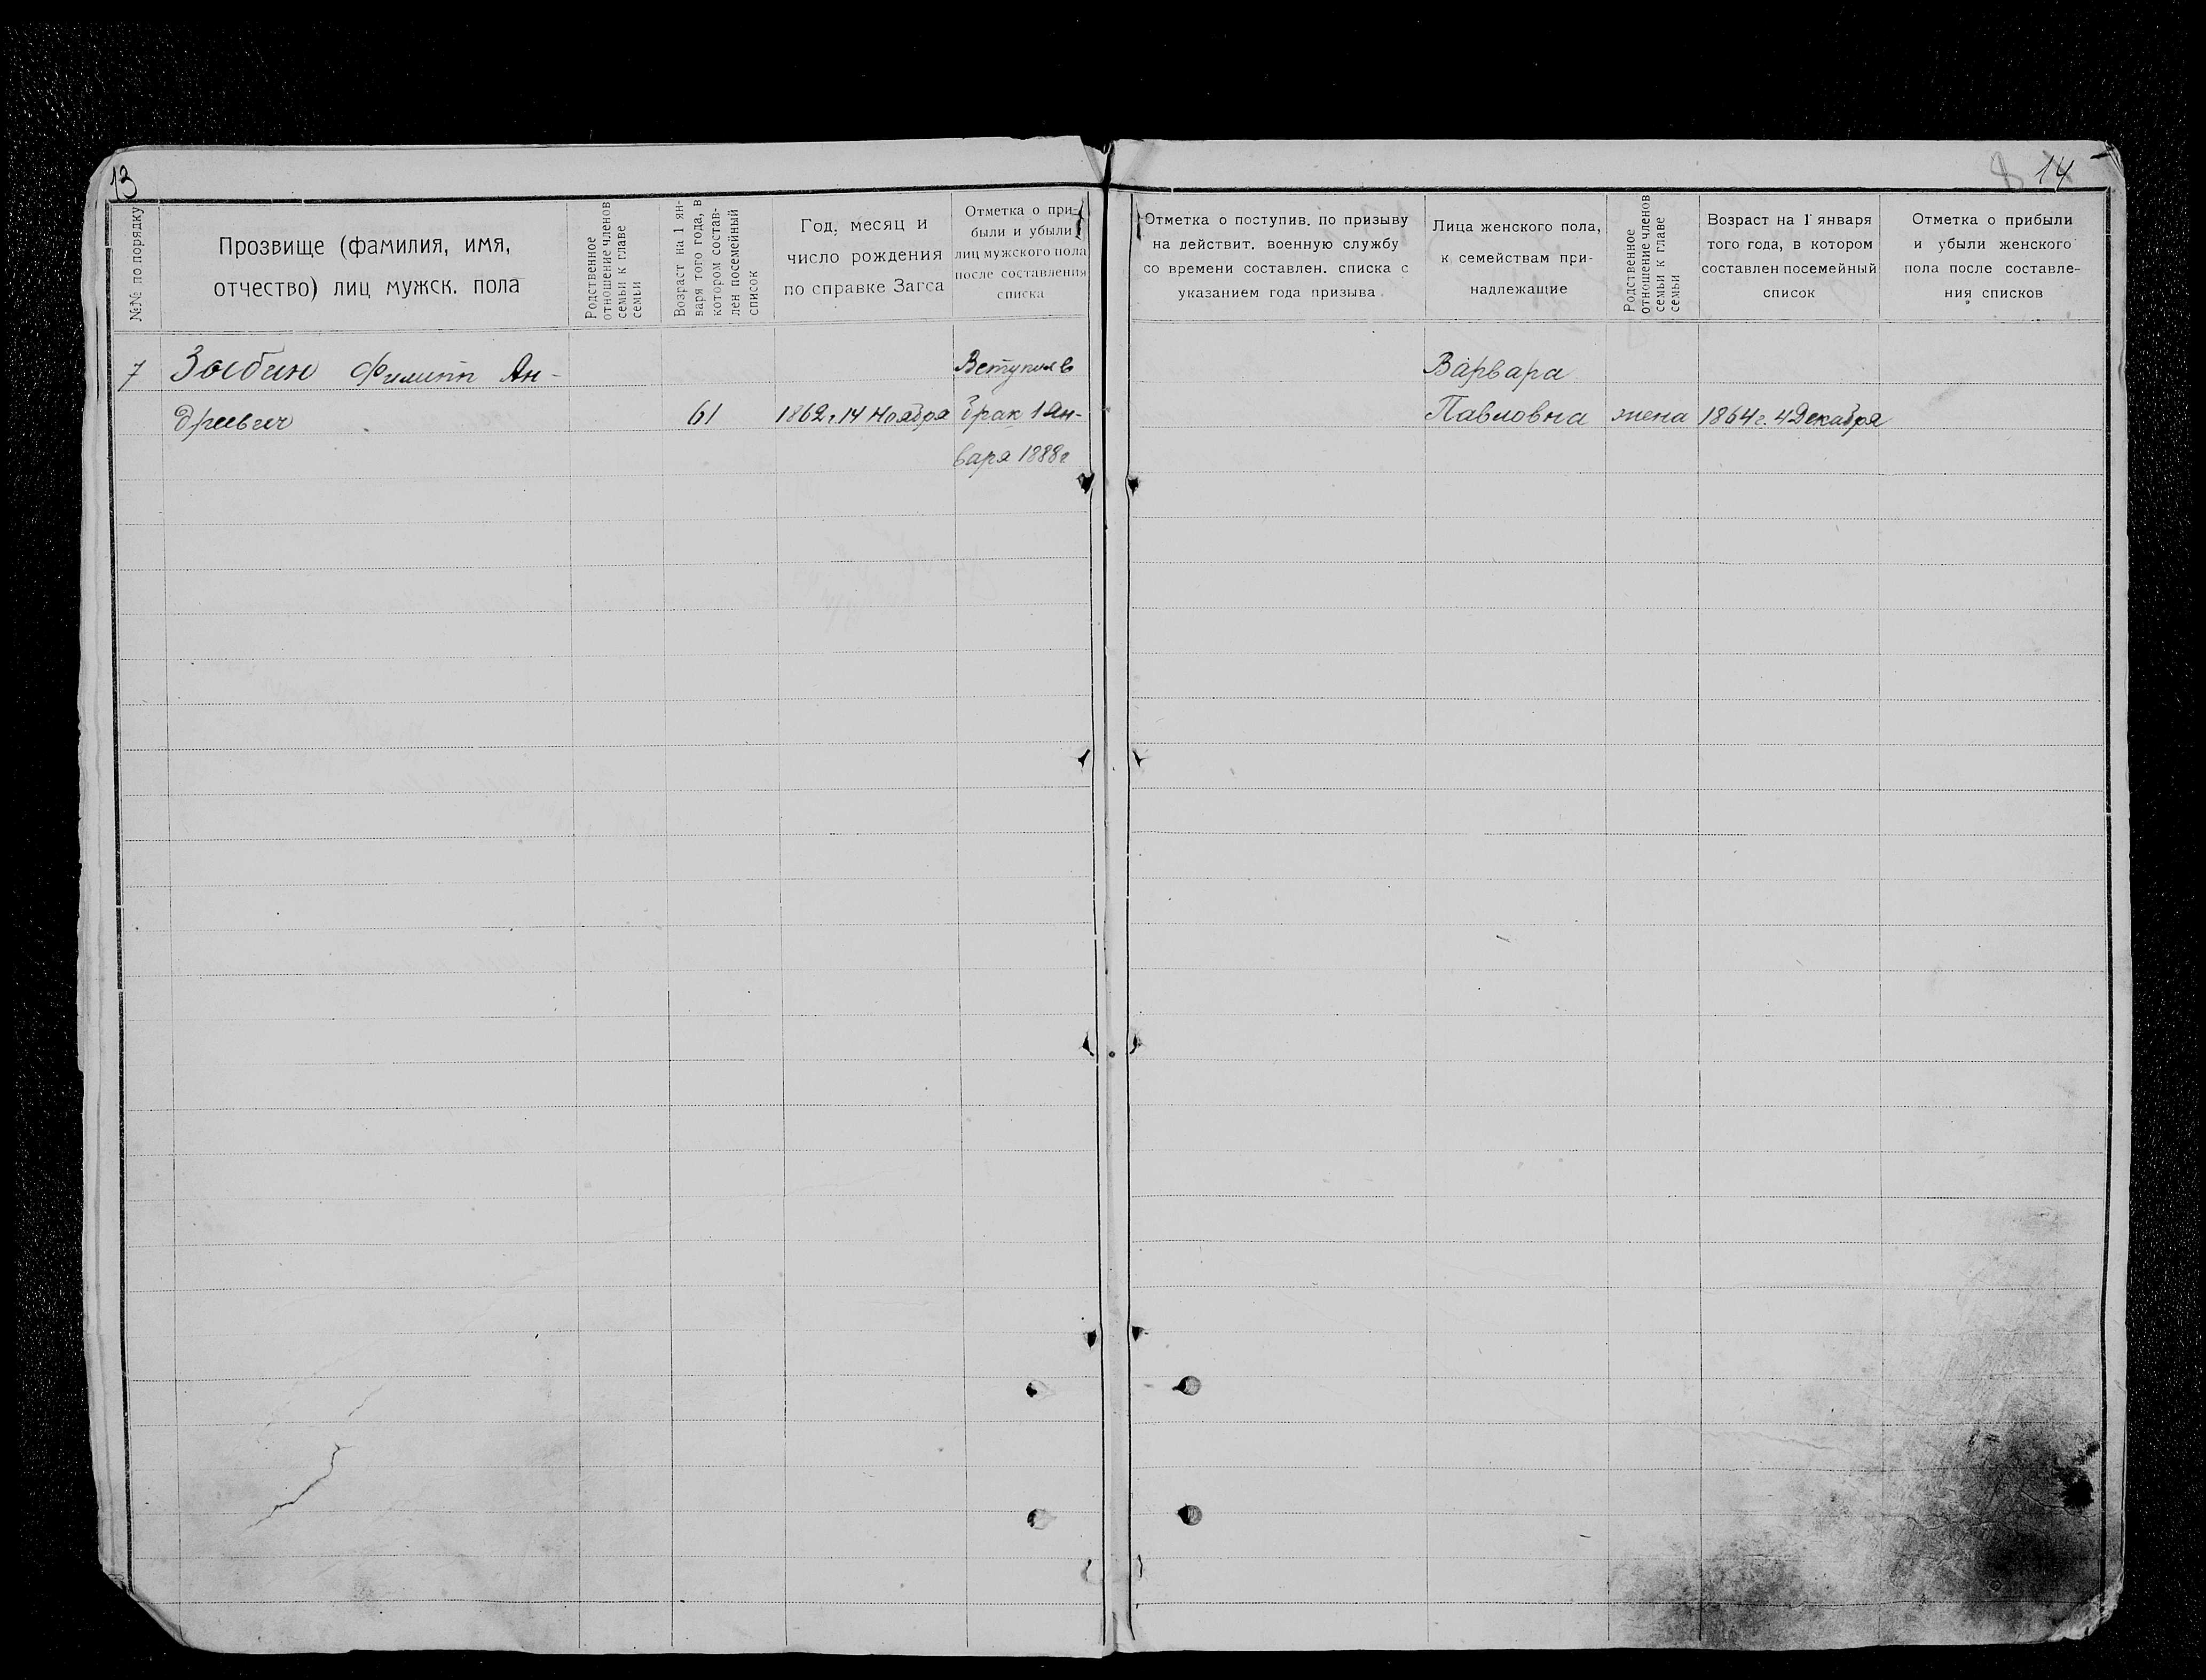 13
№№ по порядку
Прозвище (фамилия, имя,
отчество) лиц мужск. пола
Родственное
отношение членов
семьи к главе
семьи
Возраст на 1 ян-
варя того года, в
котором состав-
лен посемейный
список
Год, месяц и
число рождения
по справке Загса
Отметка о при-
были и убыли
лиц мужского пола
после составления
списка
7 Зыбин Филипп Ан-
дреевич
61
1862 г. 14 Ноября
Вступил в
брак 1 Ян-
варя 1888 г
8 14
Отметка о поступив. по призыву
на действит. военную службу
со времени составлен. списка с
указанием года призыва
Лица женского пола,
к семействам при-
надлежащие
Родственное
отношение членов
семьи к главе
семьи
Возраст на 1 января
того года, в котором
составлен посемейный
список
Отметка о прибыли
и убыли женского
пола после составле-
ния списков
Варвара
Павловна
жена
1864 г. 4 Декабря